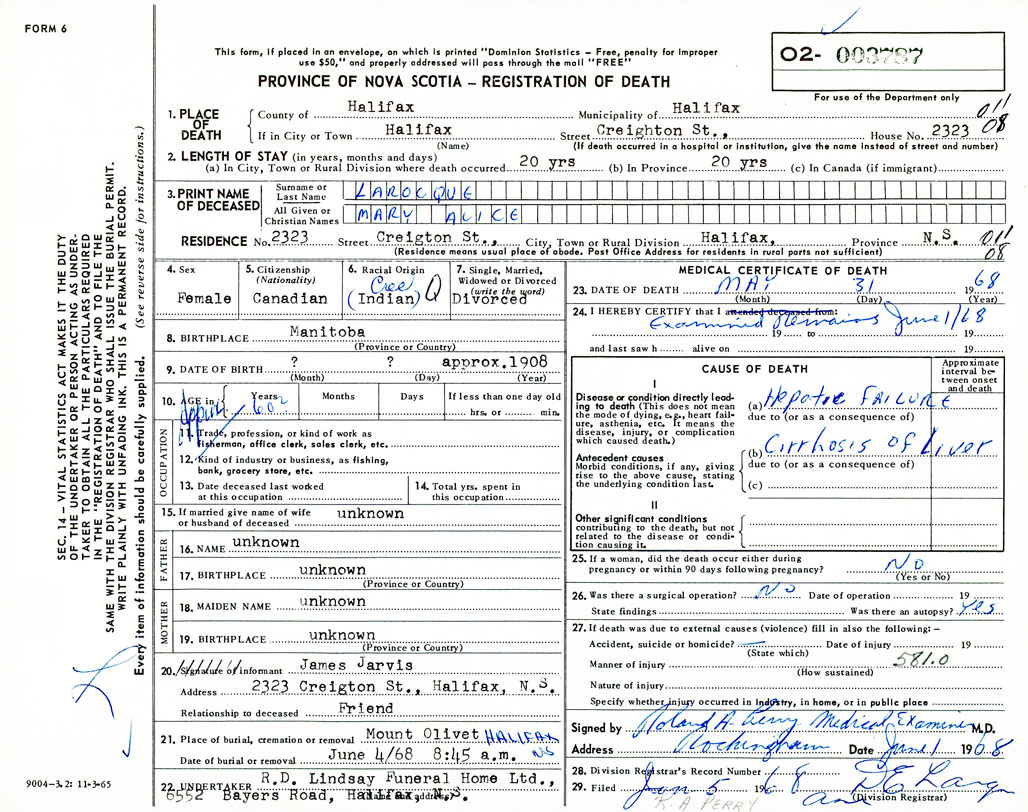 FORM 6
This form, if placed in an envelope, on which is printed "Dominion Statistics – Free, penalty for improper
use $50," and properly addressed will pass through the mail "FREE"
PROVINCE OF NOVA SCOTIA – REGISTRATION OF DEATH
O2- 003787
For use of the Department only
1. PLACE OF DEATH
County of Halifax Municipality of Halifax 011
If in City or Town Halifax Street Creighton St., House No. 2323 08
(Name) (If death occurred in a hospital or institution, give the name instead of street and number)
2. LENGTH OF STAY (in years, months and days)
(a) In City, Town or Rural Division where death occurred 20 yrs (b) In Province 20 yrs (c) In Canada (if immigrant)
3. PRINT NAME OF DECEASED
Surname or Last Name LAROCQUE
All Given or Christian Names MARY ALICE
RESIDENCE No. 2323 Street Creigton St., City, Town or Rural Division Halifax, Province N.S. 011
(Residence means usual place of abode. Post Office Address for residents in rural parts not sufficient) 08
4. Sex
Female
5. Citizenship
(Nationality)
Canadian
6. Racial Origin
Cree
(Indian)
7. Single, Married,
Widowed or Divorced
(write the word)
Divorced
8. BIRTHPLACE Manitoba
(Province or Country)
9. DATE OF BIRTH ? ? approx.1908
(Month) (Day) (Year)
10. AGE in Years Months Days If less than one day old
approx 60 hrs. or min.
OCCUPATION
11. Trade, profession, or kind of work as
fisherman, office clerk, sales clerk, etc.
12. Kind of industry or business, as fishing,
bank, grocery store, etc.
13. Date deceased last worked
at this occupation
14. Total yrs. spent in
this occupation
15. If married give name of wife
or husband of deceased unknown
FATHER
16. NAME unknown
17. BIRTHPLACE unknown
(Province or Country)
MOTHER
18. MAIDEN NAME unknown
19. BIRTHPLACE unknown
(Province or Country)
20. Signature of informant James Jarvis
Address 2323 Creigton St., Halifax, N.S.
Relationship to deceased Friend
21. Place of burial, cremation or removal Mount Olivet HALIFAX
Date of burial or removal June 4/68 8:45 a.m. NS
22. UNDERTAKER R.D. Lindsay Funeral Home Ltd.,
6552 Bayers Road, Halifax, N.S.
(Name and address)
MEDICAL CERTIFICATE OF DEATH
23. DATE OF DEATH MAY 31 1968
(Month) (Day) (Year)
24. I HEREBY CERTIFY that I attended deceased from:
Examined Remains June 1/68
19 to 19
and last saw h alive on 19
CAUSE OF DEATH
Approximate interval between onset and death
I
Disease or condition directly lead-
ing to death (This does not
mean the mode of dying, e.g., heart fail-
ure, asthenia, etc. It means the
disease, injury, or complication
which caused death.)
(a) Hepatic FAILURE
due to (or as a consequence of)
Antecedent causes
Morbid conditions, if any, giving
rise to the above cause, stating
the underlying condition last.
(b) Cirrhosis of Liver
due to (or as a consequence of)
(c)
II
Other significant conditions
contributing to the death, but not
related to the disease or condi-
tion causing it.
25. If a woman, did the death occur either during
pregnancy or within 90 days following pregnancy? No
(Yes or No)
26. Was there a surgical operation? No Date of operation 19
State findings Was there an autopsy? Yes
27. If death was due to external causes (violence) fill in also the following: –
Accident, suicide or homicide? Date of injury 19
(State which) 581.0
Manner of injury
(How sustained)
Nature of injury
Specify whether injury occurred in industry, in home, or in public place
Signed by Roland A. Perry Medical Examiner M.D.
Address Rockingham Date June 1 1968
28. Division Registrar's Record Number
29. Filed Jun 5 1968
(Division Registrar)
R A PERRY
SEC. 14 – VITAL STATISTICS ACT MAKES IT THE DUTY
OF THE UNDERTAKER OR PERSON ACTING AS UNDER-
TAKER TO OBTAIN ALL THE PARTICULARS REQUIRED
IN THE "REGISTRATION OF DEATH" AND TO FILE THE
SAME WITH THE DIVISION REGISTRAR WHO SHALL ISSUE THE BURIAL PERMIT.
WRITE PLAINLY WITH UNFADING INK. THIS IS A PERMANENT RECORD.
Every item of information should be carefully supplied. (See reverse side for instructions.)
9004-3.2: 11-3-65